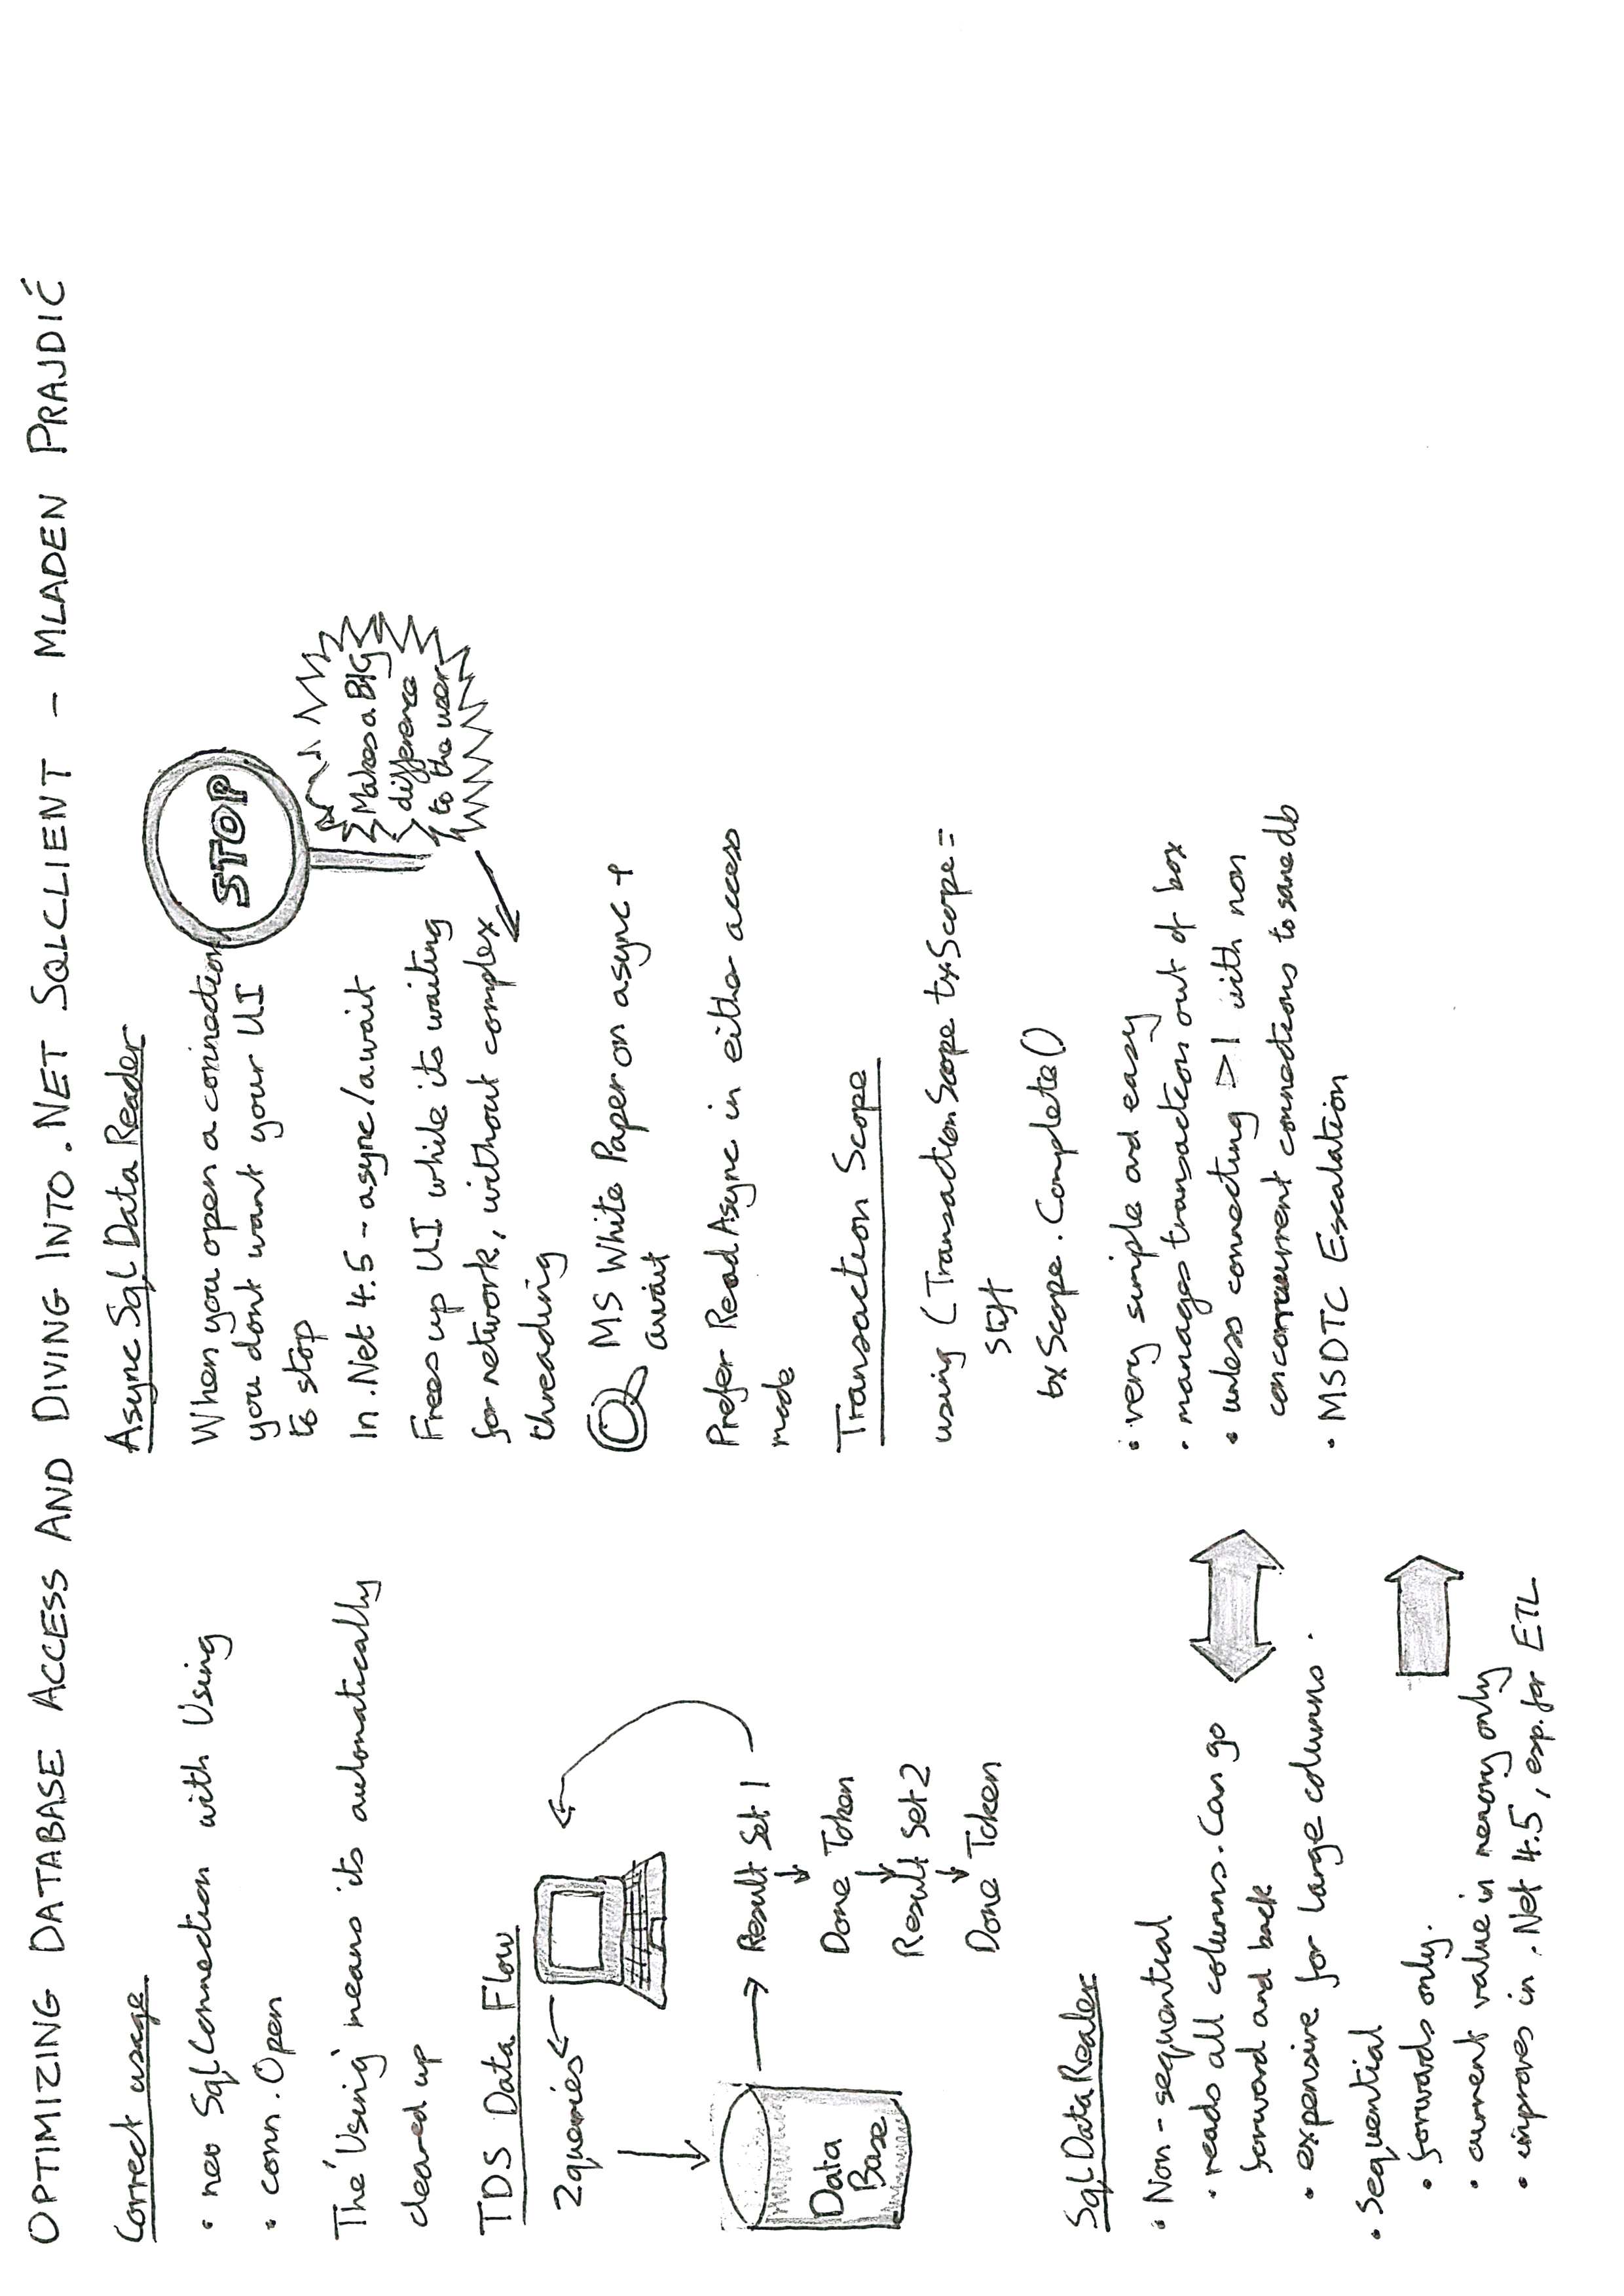 OPTIMIZING DATABASE ACCESS AND DIVING INTO .NET SQLCLIENT - MLADEN PRAJDIĆ
Correct usage
• new SqlConnection with Using
• conn.Open
The 'Using' means its automatically
cleared up
TDS Data Flow
2 queries
Data
Base
Result Set 1
Done Token
Result Set 2
Done Token
SqlDataReader
• Non-sequential
• reads all columns. Can go
forward and back
• expensive for large columns.
• Sequential
• forwards only.
• current value in memory only
• improves in .Net 4.5, esp. for ETL
Async SqlDataReader
When you open a connection
you dont want your UI
to stop
STOP
In .Net 4.5 - async/await
Frees up UI while its waiting
for network, without complex
threading
Makes a BIG
difference
to the user
MS White Paper on async +
await
Prefer ReadAsync in either access
mode
Transaction Scope
using (TransactionScope txScope =
stuff
txScope.Complete()
• very simple and easy
• manages transaction out of box
• unless connecting >1 with non
concurrent connections to same db
• MSDTC Escalation